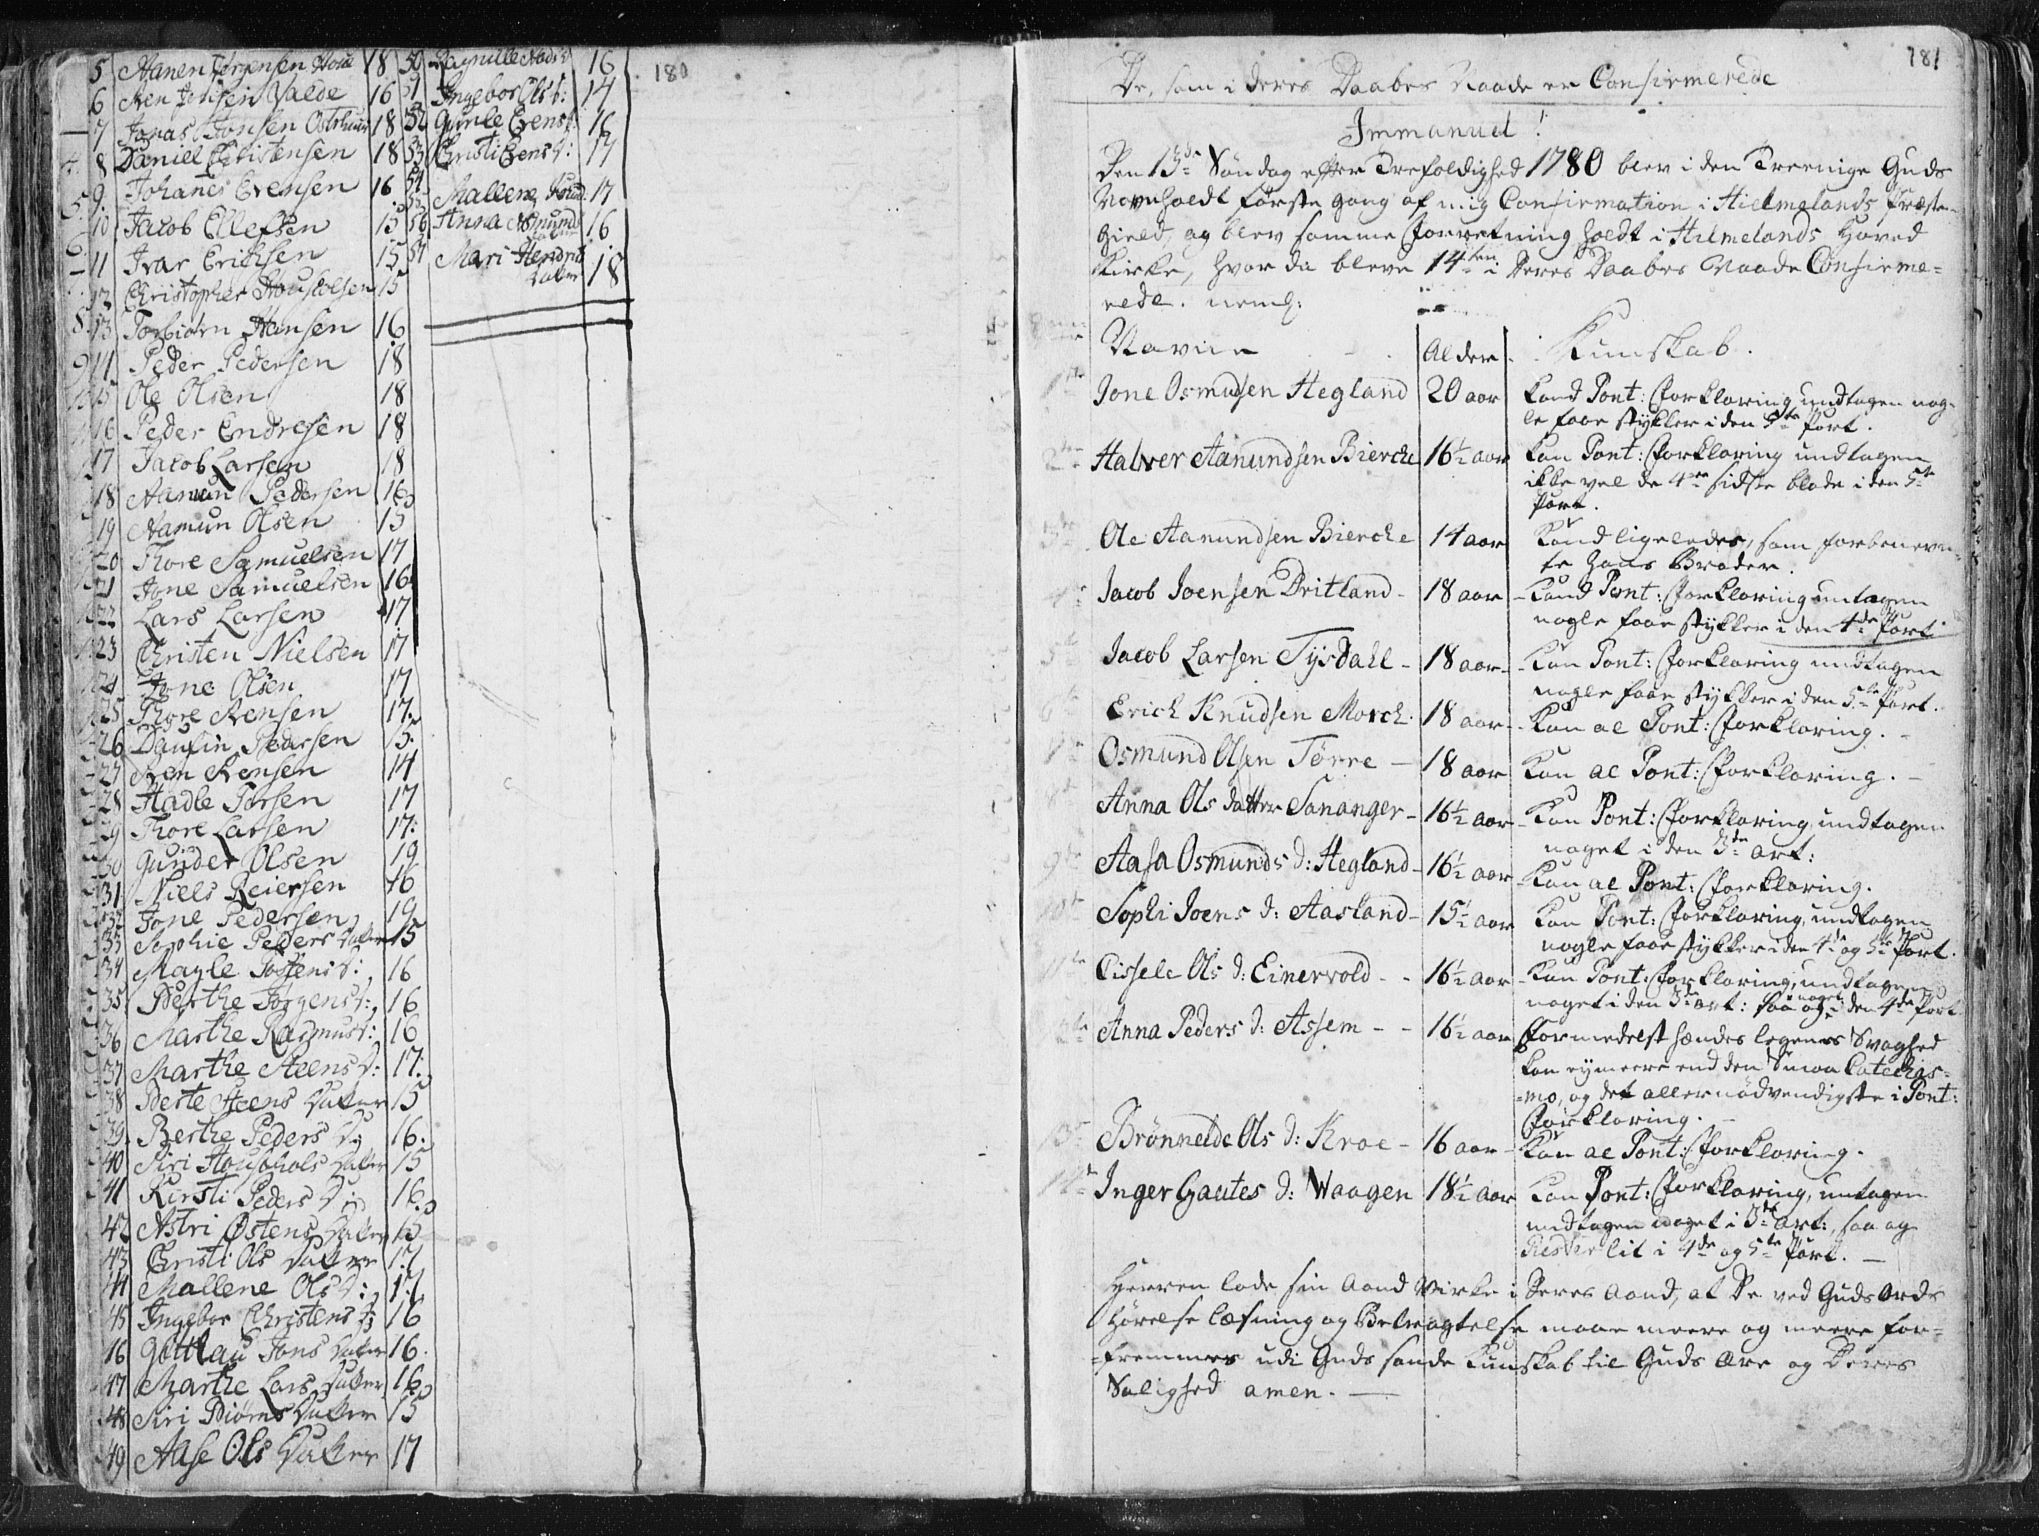 180
5 Aanen Jørgensen 18
6 Aen Jensen Valde 16
7 Jonas Jonsen 18
8 Daniel Christensen 18
9 Johanes Evensen 16
10 Jacob Ellefsen 15
11 Ivar Erichsen 15
12 Christopher 15
13 Torbiørn Hansen 16
14 Peder Pedersen 18
15 Ole Olsen 18
16 Peder Endresen 18
17 Jacob Larsen 18
18 Aamun Pedersen 16
19 Aamun Olsen 15
20 Thore Samuelsen 17
21 Jone Samuelsen 16
22 Lars Larsen 17
23 Christen Nielsen 17
24 Jone Olsen 17
25 Thore Aensen 17
26 Pedersen 15
27 Aen Aensen 14
28 Hadle 17
29 Thore Larsen 17:
30 Gunder Olsen 19
31 Niels Reiersen 16
32 Jone Pedersen 19
33 Sophie Peders Datter 15
34 Magle D: 16
35 Berthe Jørgens D: 16
36 Marthe Rasmus D: 16
37 Marthe Steens D: 17:
38 Berte Steens Datter 15
39 Berthe Peders D: 16.
40 Siri Datter 15
41 Kirsti Peders D: 16
42 Astri Østens Datter 15
43 Christi Ols Datter 17
44 Mallene Ols D: 17
45 Ingebor Christens D: 16
46 Jons Datter 16.
47 Marthe Lars Datter 16
48 Siri Biørns Datter 15
49 Aase Ols Datter 17
50 Ragnille 16
51 Ingebor Ols D: 17
52 Gunle Evens D: 16
53 Christi Evens D: 17
54
55 Mallene 17
56 Anna Osmunds Datter 16
57 Mari Henrichs Datter 18
181
De, som i deres Daabes Naade er Confirmerede
Immanuel!
Den 13de Søndag efter Trefoldighed 1780 blev i den Treenige Guds
Navn holdt første gang af mig Confirmation i Hielmelands Præste-
Gield, og blev samme Forretning holdt i Hielmelands Hoved
Kirke, hvor da bleve 14ten i Deres Daabes Naade Confirme=
rede. neml:
Navne Alder. Kundskab.
1te Jone Osmunsen Hegland 20 aar Kand Pont: Forklaring undtagen nog-
le faae stykker i den 5te Part.
2den Halver Aanundsen Bierche 16½ aar Kan Pont: Forklaring undtagen
ikke vel de 4re sidste blade i den 5te
Part.
3de Ole Aanundsen Bierche 14 aar Kand ligeledes, som forbenevn-
te hans Broder.
4de Jacob Joensen Dritland - 18 aar - Kand Pont: Forklaring untagen
nogle faae stykker i den 4de Part
5te Jacob Larsen Tysdahl - 18 aar - Kan Pont: Forklaring undtagen
nogle faae stykker i den 5te Part.
6te Erich Knudsen Morch. 18 aar - Kan al Pont: Forklaring.
7de Osmund Olsen Tørre - 18 aar Kan al Pont: Forklaring. -
8de Anna Ols datter Sananger - 16½ aar - Kan Pont: Forklaring, undtagen
noget i den 3de art:
9de Aasa Osmunds d: Hegland - 16½ aar - Kan al Pont: Forklaring.
10de Sophi Joens d: Aasland - 15½ aar Kan Pont: Forklaring, undtagen
nogle faae stykker i den 4de og 5te Part.
11te Cissele Ols d: Einervold - - 16½ aar - Kan Pont: Forklaring, undtagen
noget i den 3de art: saa og noget i den 4de Part
12te Anna Peders d: Assem - - 16½ aar Formedelst hændes legems Svaghed
kan ey meere end den Smaa Catechis=
=mo, og det aller nødvendigste i Pont:
Forklaring.
13de Brønnelde Ols d: Kroe - 16 aar - Kan al Pont: Forklaring.
14de Inger Gautes d: Waagen 18½ aar Kan Pont: Forklaring, untagen
undtagen noget i 3de art:, saa og
lit i 4de og 5te Part. -
Herren lade sin Aand Virke i Deres Aand, at De ved Guds Ords
Hørelse Læsning og Betragtelse maae meere og meere for=
=fremmes udi Guds sande Kundskab til Guds Ære og Deres
Salighed amen. -